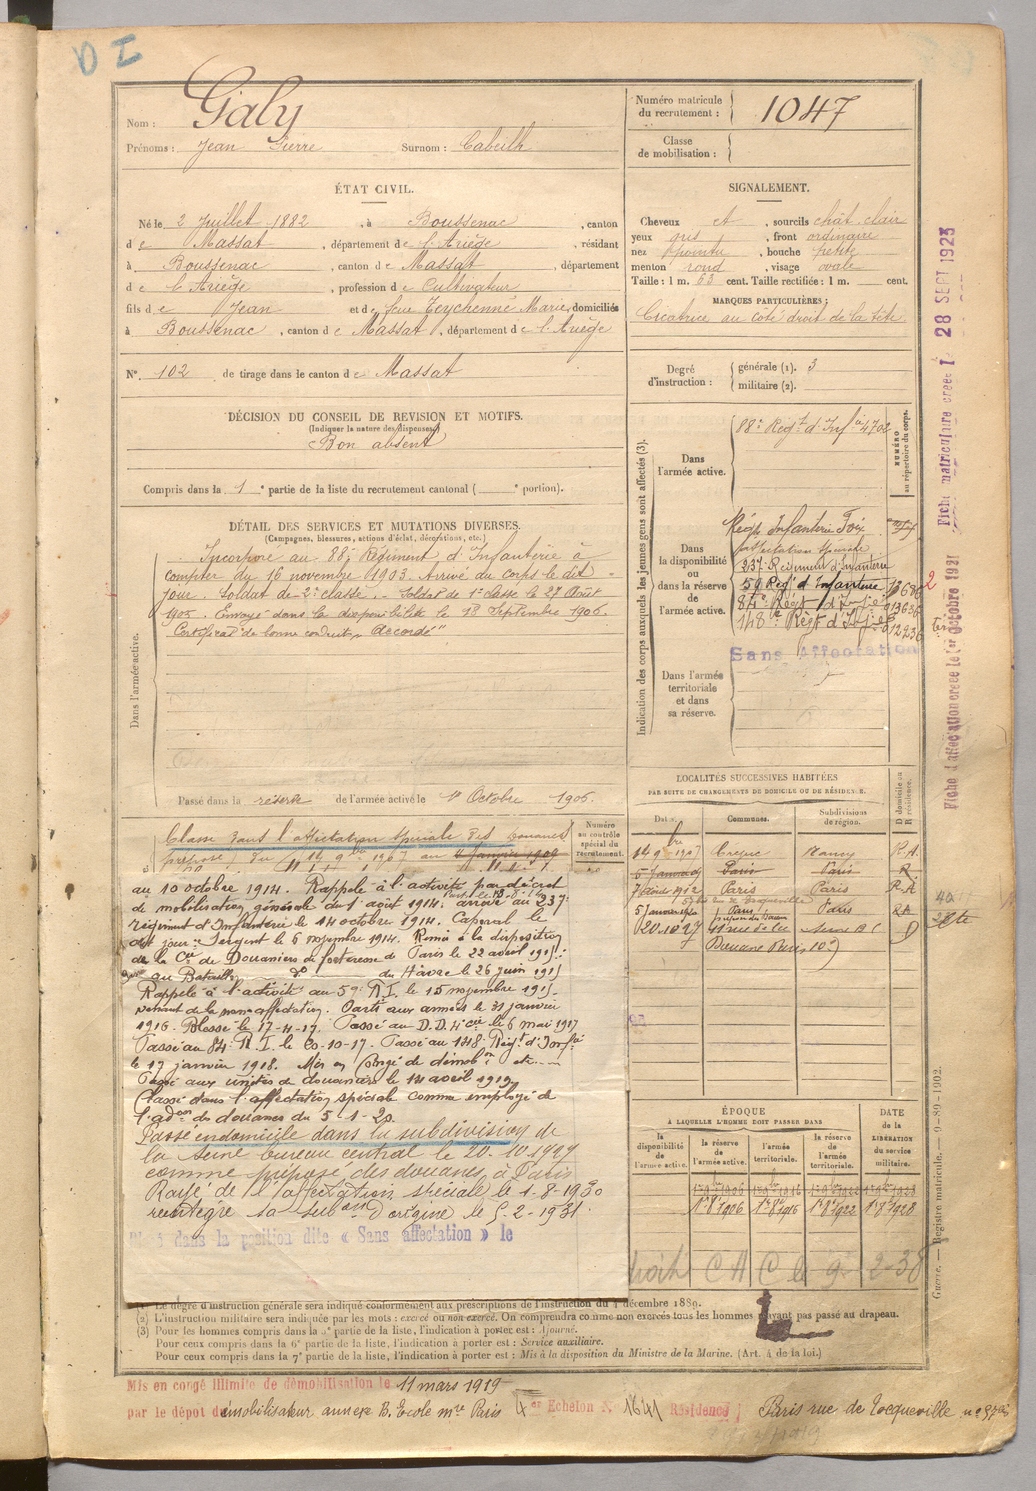 D I
Nom : Galy
Prénoms : Jean Pierre Surnom : Cabeilh
Numéro matricule du recrutement : 1047
Classe de mobilisation :
ÉTAT CIVIL.
Né le 2 Juillet 1882, à Boussenac, canton
de Massat, département de l'Ariège, résidant
à Boussenac, canton de Massat, département
de l'Ariège, profession de Cultivateur
fils de Jean et de feue Teychenné Marie, domiciliés
à Boussenac, canton de Massat, département de l'Ariège
N° 102 de tirage dans le canton de Massat
SIGNALEMENT.
Cheveux et , sourcils chât. clair
yeux gris , front ordinaire
nez pointu , bouche petite
menton rond , visage ovale
Taille : 1 m. 63 cent. Taille rectifiée : 1 m. cent.
MARQUES PARTICULIÈRES :
Cicatrice au côté droit de la tête
Degré d'instruction : générale (1). 3
militaire (2).
DÉCISION DU CONSEIL DE REVISION ET MOTIFS.
(Indiquer la nature des dispenses)
Bon absent
Compris dans la 1e partie de la liste du recrutement cantonal ( e portion).
DÉTAIL DES SERVICES ET MUTATIONS DIVERSES.
(Campagnes, blessures, actions d'éclat, décorations, etc.)
Dans l'armée active.
Incorporé au 88e Régiment d'Infanterie à
compter du 16 novembre 1903. Arrivé au corps le dit
jour. Soldat de 2e classe. - Soldat de 1e classe le 27 Août
1905. Envoyé dans la disponibilité le 18 Septembre 1906.
Certificat de bonne conduite "Accordé"
Passé dans la réserve de l'armée active le 1er Octobre 1906.
Indication des corps auxquels les jeunes gens sont affectés (3).
NUMÉRO au répertoire du corps.
Dans l'armée active.
88e Régt d'Infie 4702
Dans la disponibilité ou dans la réserve de l'armée active.
Régt Infanterie Foix
affectation spéciale
237e Régiment d'Infanterie
59 Régt d'Infanterie
84e Régt d'Infie
148e Régt d'Infie
Sans Affectation
Dans l'armée territoriale et dans sa réserve.
Numéro au contrôle spécial du recrutement.
Classé dans l'affectation spéciale des Douanes
au 10 octobre 1914. Rappelé à l'activité par décret
de mobilisation générale du 1 août 1914. arrivé au 237e
régiment d'Infanterie le 14 octobre 1914. Caporal le
dit jour. Sergent le 6 novembre 1914. Remis à la disposition
de la Cie de Douaniers de forteresse de Paris le 22 avril 1915.
au Bataillon do du Hâvre le 26 juin 1915
Rappelé à l'activité au 59e R.I. le 15 novembre 1915
venant de la non affectation. Parti aux armées le 31 janvier
1916. Blessé le 17-4-17. Passé au D.D. 4e cie le 6 mai 1917
Passé au 84e R.I. le 20-10-17. Passé au 148e Régt d'Infie
le 17 janvier 1918. Mis en congé de démobon etc
Passé aux unités de douaniers le 14 avril 1919
Classé dans l'affectation spéciale comme employé de
l'adon des douanes du 5-1-20.
Passé en domicile dans la subdivision de
la Seine bureau central le 20.10.1927
comme préposé des douanes, à Paris
Rayé de l'affectation spéciale le 1-8-1930
réintégré sa subon d'origine le 5-2-1931
dans la position dite « Sans affectation » le
LOCALITÉS SUCCESSIVES HABITÉES
PAR SUITE DE CHANGEMENTS DE DOMICILE OU DE RÉSIDENCE.
Dates. Communes. Subdivisions de région. D domicile ou R résidence.
14 9bre 1907 Nancy R.A.
Paris Paris R.
7 1912 Paris Paris R.A
5 Janvier 1920 Paris Paris
20.10.27 Seine B C D
Douane Paris 10e
ÉPOQUE
À LAQUELLE L'HOMME DOIT PASSER DANS
la disponibilité de l'armée active. la réserve de l'armée active. l'armée territoriale. la réserve de l'armée territoriale.
DATE DE LA LIBÉRATION du service militaire.
1er 8bre 1906 1er 8bre 1916 1er 8bre 1922 1er 8bre 1928
(1) Le degré d'instruction générale sera indiqué conformément aux prescriptions de l'instruction du 4 décembre 1889.
(2) L'instruction militaire sera indiquée par les mots : exercé ou non exercé. On comprendra comme non exercés tous les hommes n'ayant pas passé au drapeau.
(3) Pour les hommes compris dans la 5e partie de la liste, l'indication à porter est : Ajourné.
Pour ceux compris dans la 6e partie de la liste, l'indication à porter est : Service auxiliaire.
Pour ceux compris dans la 7e partie de la liste, l'indication à porter est : Mis à la disposition du Ministre de la Marine. (Art. 4 de la loi.)
Mis en congé illimité de démobilisation le 11 mars 1919
par le dépot démobilisateur annexe B. Ecole mre Paris 4er Echelon N. 1641 Résidence Paris rue de Tocqueville no 57bis
Fiche matriculaire créée I 28 SEPT 1925
Fiche d'affectation créée le 1er Octobre 1921
Guerre. — Registre matricule. — 9-80-1902.